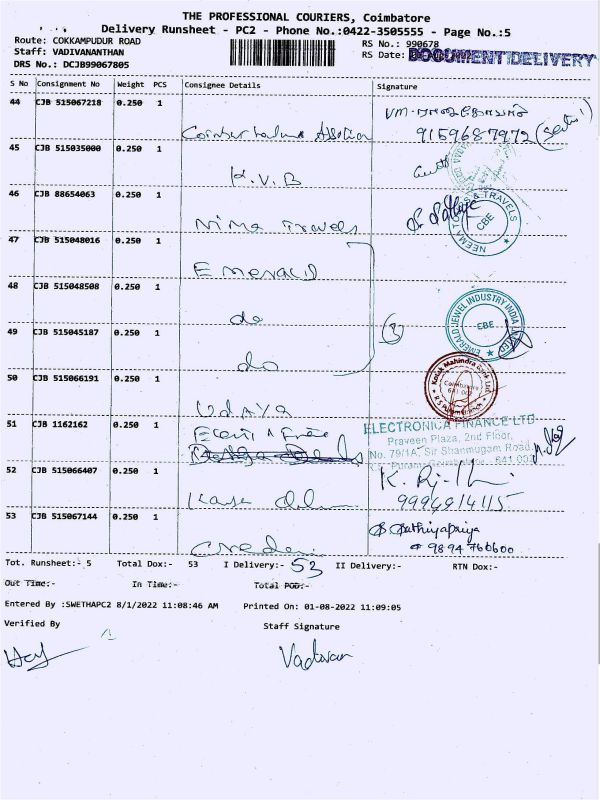 THE PROFESSIONAL COURIERS, Coimbatore
Delivery Runsheet - PC2 - Phone No.:0422-3505555 - Page No.:5
Route: COKKAMPUDUR ROAD
RS No.: 990678
Staff: VADIVANANTHAN
RS Date:
DOCUMENT DELIVERY
DRS No.: DCJB99067805
S No Consignment No Weight PCS Consignee Details Signature
44 CJB 515067218 0.250 1
9159687972
45 CJB 515035000 0.250 1
K.V.B
46 CJB 88654063 0.250 1
Nima Travels
NEEMA TOURS & TRAVELS
CBE
47 CJB 515048016 0.250 1
Emerald
48 CJB 515048508 0.250 1
do
3
EMERALD JEWEL INDUSTRY INDIA LIMITED
49 CJB 515045187 0.250 1
do
50 CJB 515066191 0.250 1
Udaya
Kotak Mahindra Bank Ltd.
Coimbatore
641 002
R S Puram Branch
51 CJB 1162162 0.250 1
ELECTRONICA FINANCE LTD
Praveen Plaza, 2nd Floor,
No. 79/1A, Sir Shanmugam Road,
R.S. Puram, Coimbatore - 641 002
52 CJB 515066407 0.250 1
53 CJB 515067144 0.250 1
Sathiyapriya
9894766600
Tot. Runsheet:- 5 Total Dox:- 53 I Delivery:- 53 II Delivery:- RTN Dox:-
Out Time:- In Time:- Total POD:-
Entered By :SWETHAPC2 8/1/2022 11:08:46 AM Printed On: 01-08-2022 11:09:05
Verified By Staff Signature
Vadivan